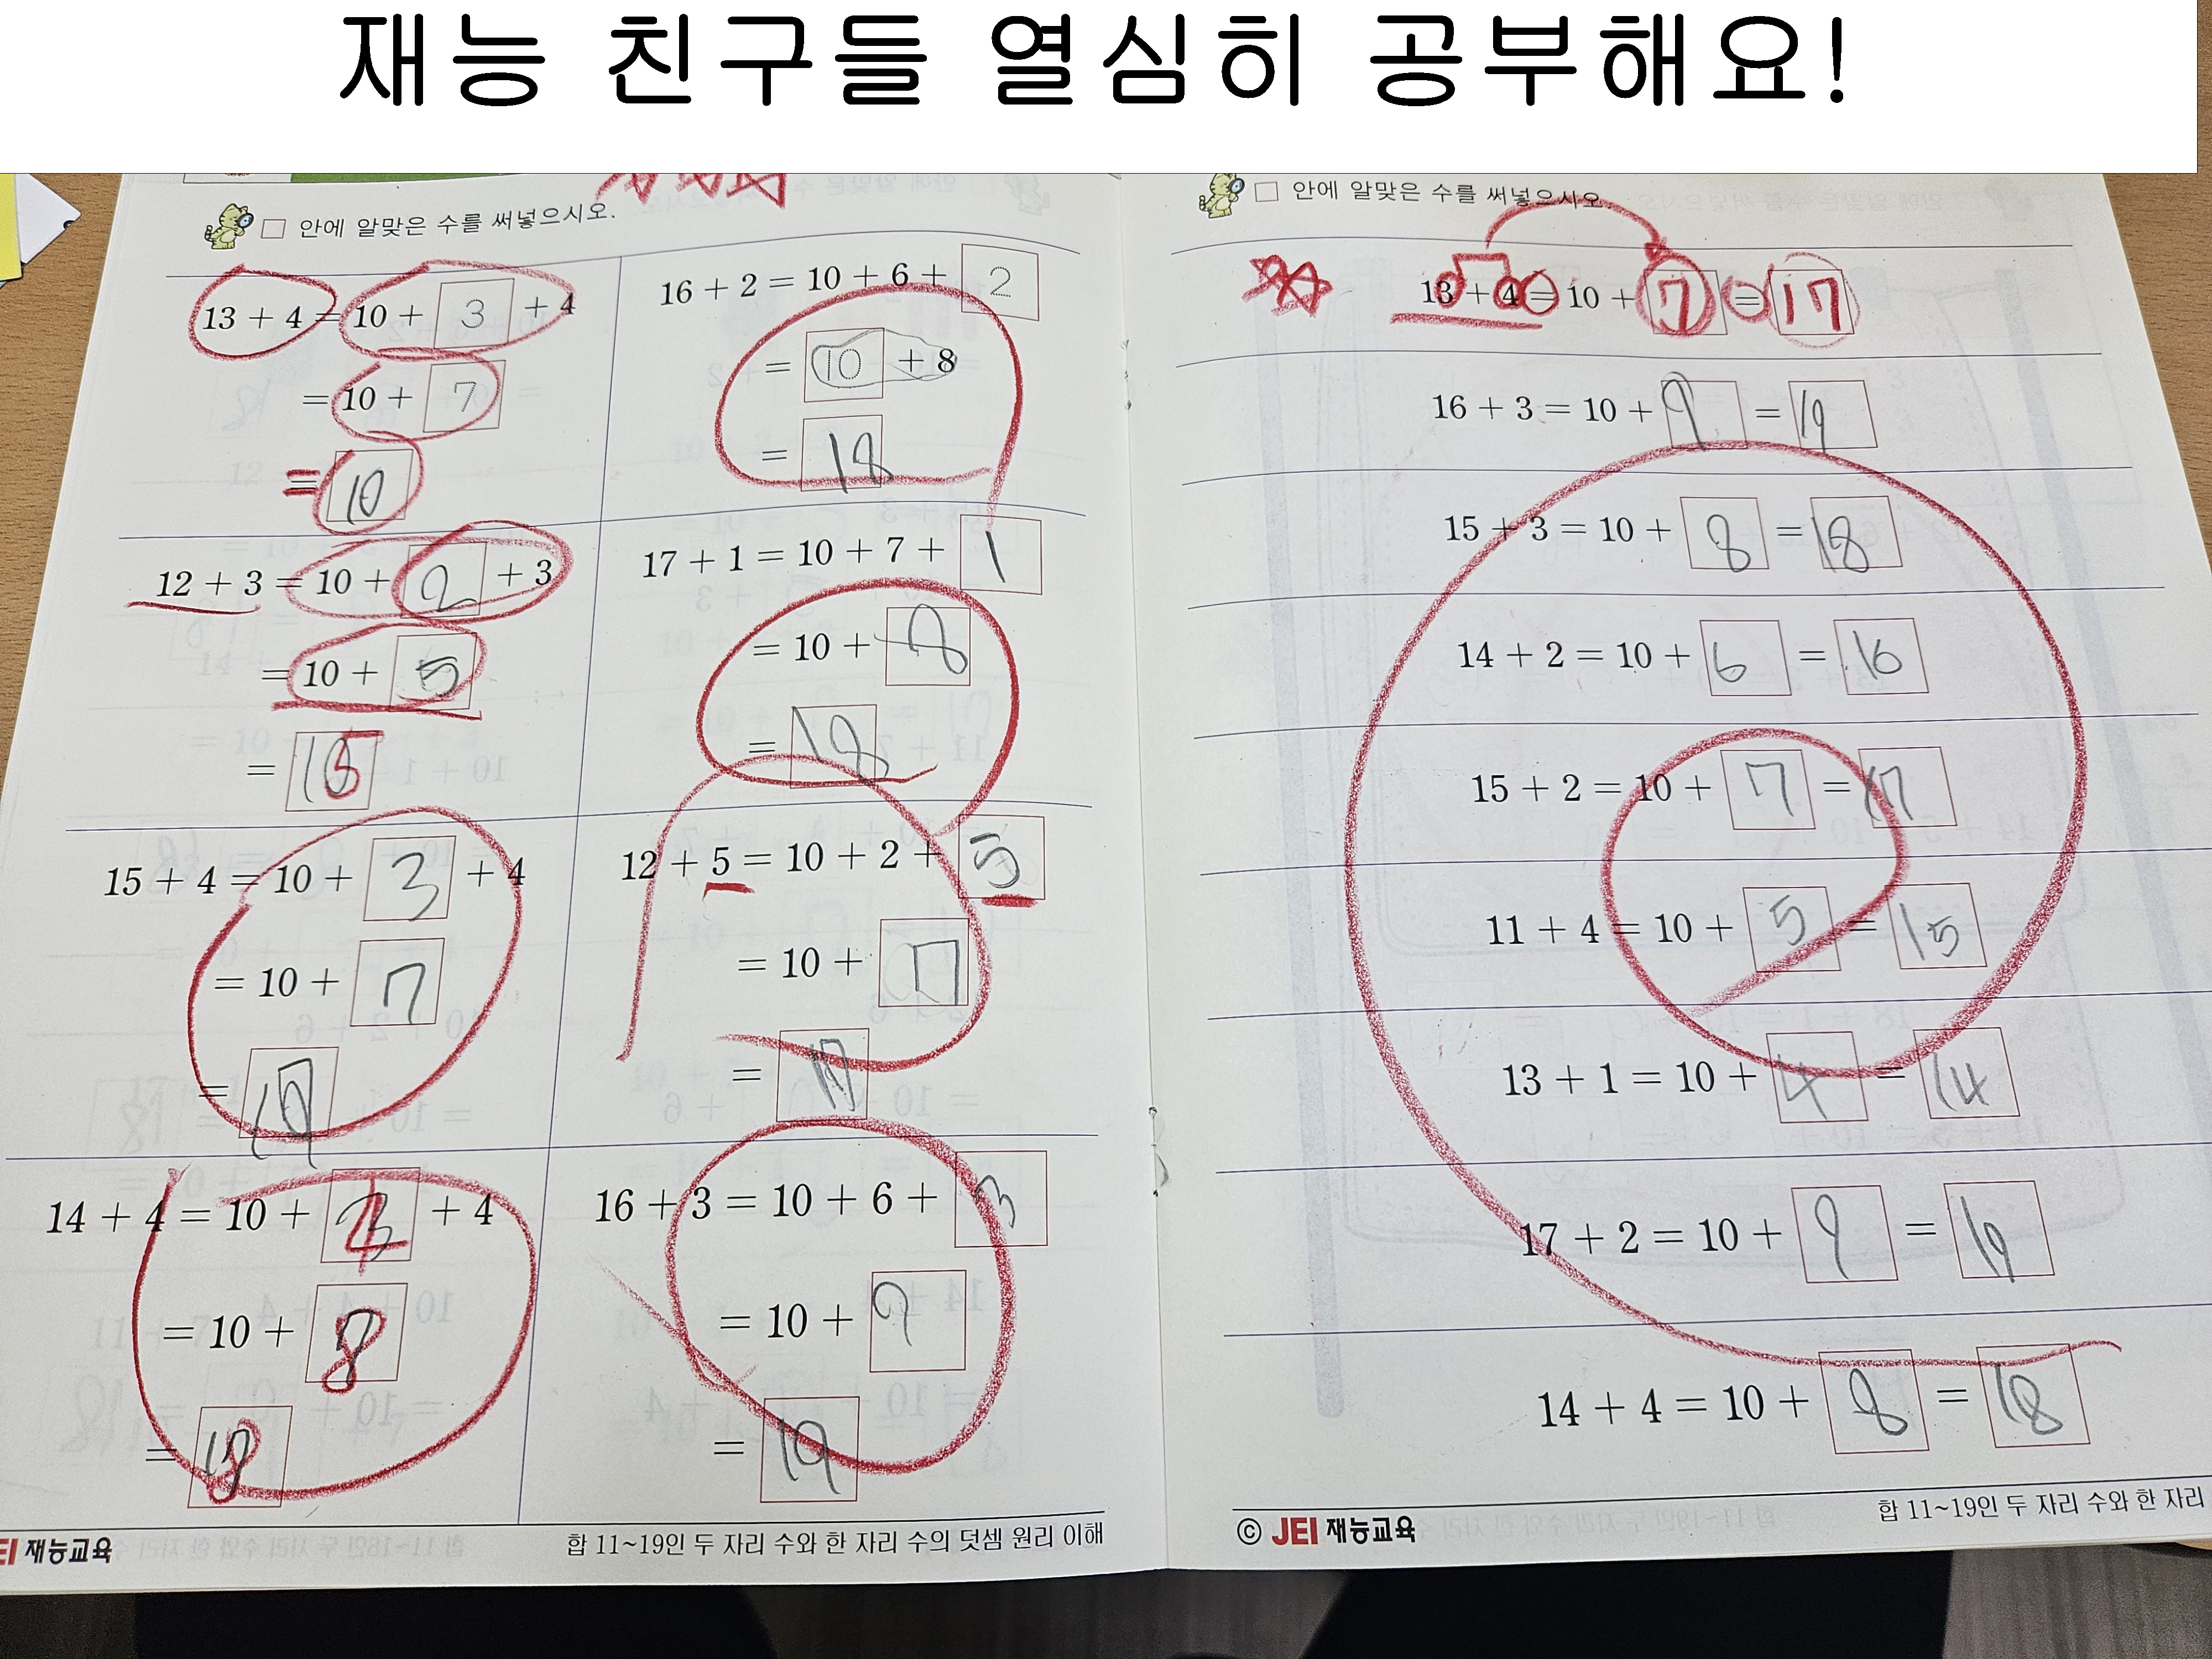 재능 친구들 열심히 공부해요!
□ 안에 알맞은 수를 써넣으시오.
13 + 4 = 10 + 3 + 4
= 10 + 7
= 10
12 + 3 = 10 + 2 + 3
= 10 + 5
= 15
15 + 4 = 10 + 3 + 4
= 10 + 7
= 19
14 + 4 = 10 + 4 + 4
= 10 + 8
= 18
16 + 2 = 10 + 6 + 2
= 10 + 8
= 18
17 + 1 = 10 + 7 + 1
= 10 + 8
= 18
12 + 5 = 10 + 2 + 5
= 10 + 7
= 17
16 + 3 = 10 + 6 + 3
= 10 + 9
= 19
EI 재능교육
합 11~19인 두 자리 수와 한 자리 수의 덧셈 원리 이해
□ 안에 알맞은 수를 써넣으시오.
13 + 4 = 10 + 7 = 17
16 + 3 = 10 + 9 = 19
15 + 3 = 10 + 8 = 18
14 + 2 = 10 + 6 = 16
15 + 2 = 10 + 7 = 17
11 + 4 = 10 + 5 = 15
13 + 1 = 10 + 4 = 14
17 + 2 = 10 + 9 = 19
14 + 4 = 10 + 8 = 18
© JEI 재능교육
합 11~19인 두 자리 수와 한 자리